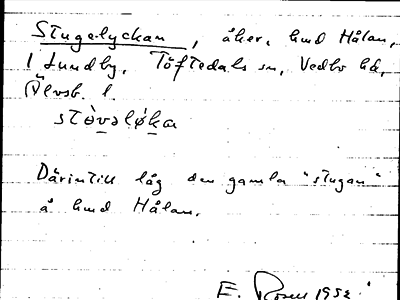 Stugelyckan, åker, hmd Hålan,
1 Lundby, Töftedals sn, Vedbo hd,
Älvsb. l.
stòvəlẏka
Därintill låg den gamla "stugan"
å hmd Hålan.
E. Rosell 1952.